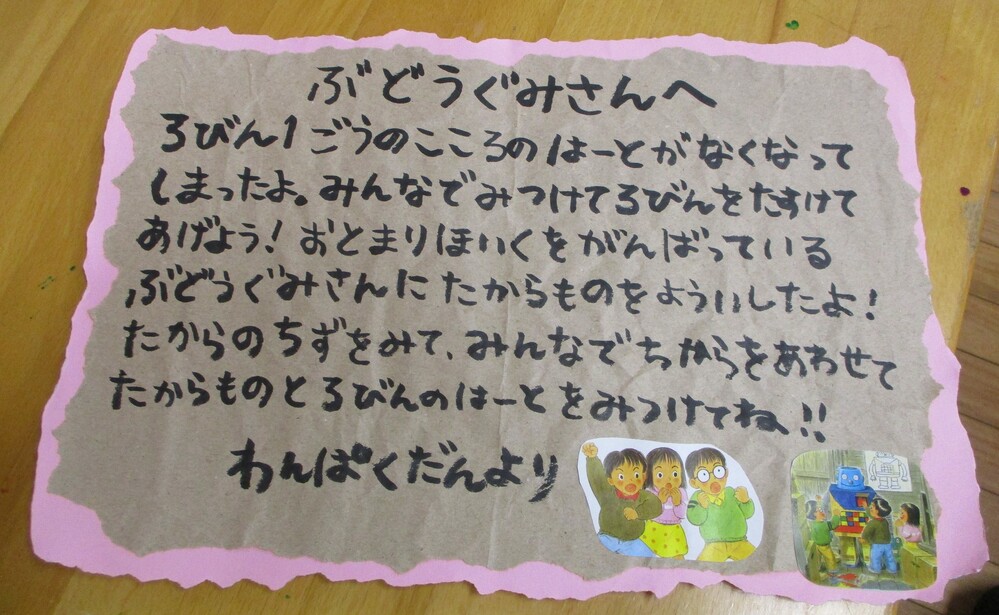 ぶどうぐみさんへ
ろびん1ごうのこころのはーとがなくなって
しまったよ。みんなでみつけてろびんをたすけて
あげよう!おとまりほいくをがんばっている
ぶどうぐみさんにたからものをよういしたよ!
たからのちずをみて、みんなでちからをあわせて
たからものとろびんのはーとをみつけてね!!
わんぱくだんより